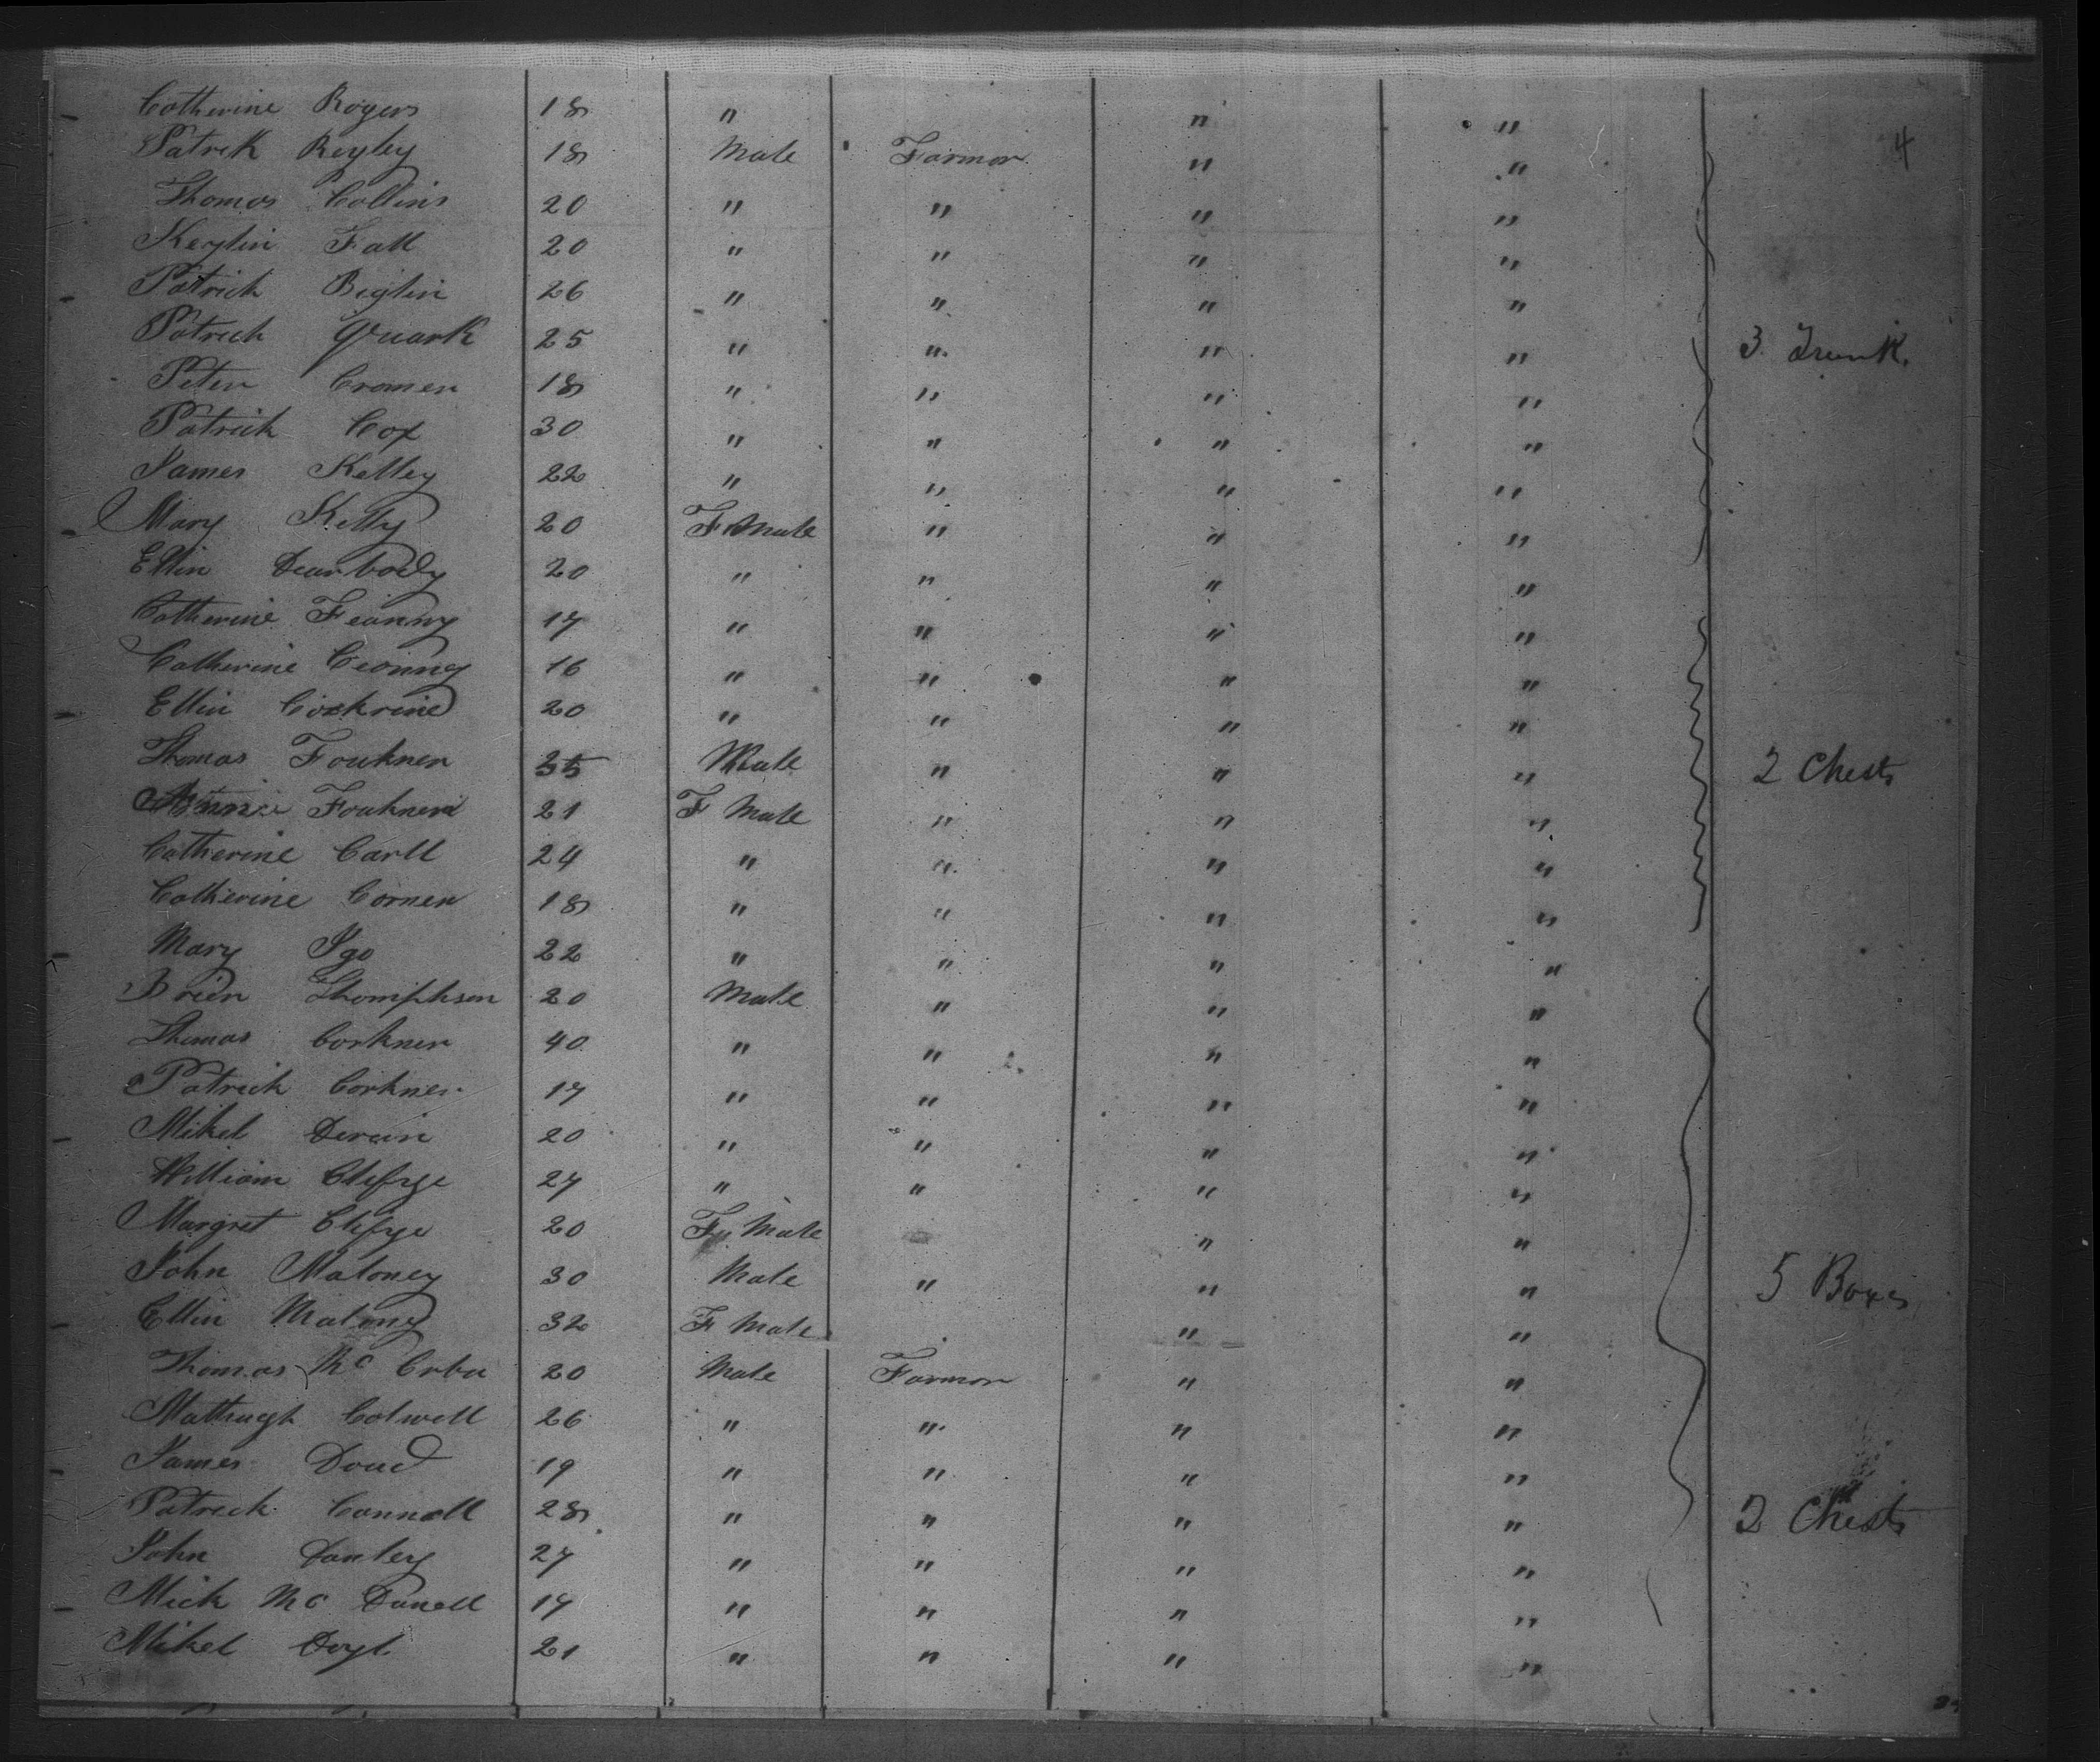 4
Catherine Rogers 18 " " "
Patrik Reyley 18 Male Farmor " "
Thomas Collins 20 " " " "
Keylin Fall 20 " " " "
Patrick Biglin 26 " " " "
Patrick Quark 25 " " " " 3 Trunk.
Peter Cromer 18 " " " "
Patrick Cox 30 " " " "
James Kelley 22 " " " "
Mary Kelly 20 F Male " " "
Ellin Dearbody 20 " " " "
Catherine Feanny 17 " " " "
Catherine Ceonney 16 " " " "
Ellin Cockrine 20 " " " "
Thomas Foukner 35 Male " " " 2 Chests
Foukner 21 F Male " " "
Catherine Carll 24 " " " "
Catherine Corner 18 " " " "
Mary Igo 22 " " " "
Brien Thomphson 20 Male " " "
Thomas Corkner 40 " " " "
Patrick Corkner 17 " " " "
Mikel Derain 20 " " " "
William 27 " " " "
Margret 20 F Male " "
John Maloney 30 Male " " " 5 Boxes
Ellin Malony 32 F Male " "
Thomas Mc 20 Male Farmor " "
Mathugh Colwell 26 " " " "
James Doud 19 " " " "
Patrick Connell 28 " " " " 2 Chests
John Danley 27 " " " "
Mick Mc Danell 17 " " " "
Mikel Doyl 21 " " " "